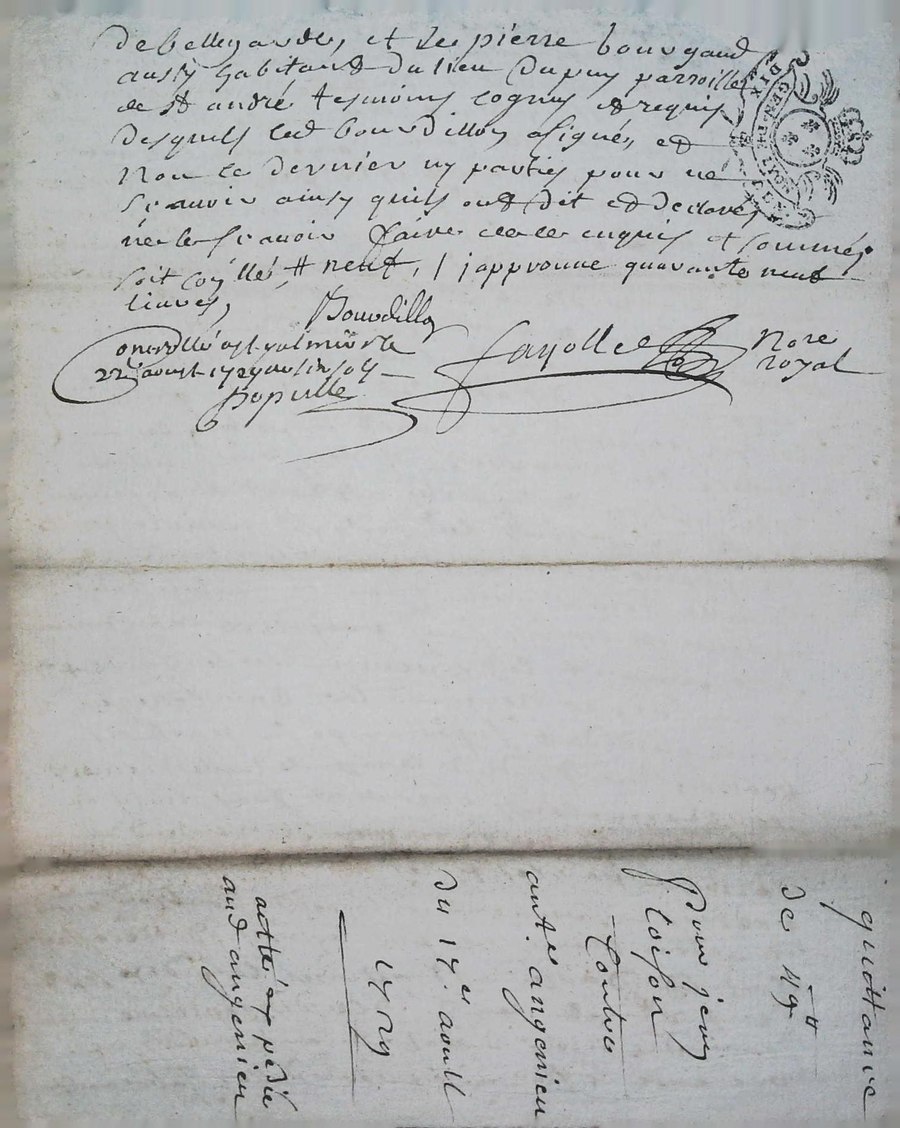 de bellegarde, et Sr pierre bourgaud
aussy habitand du lieu Dupuy parroisse
de St andré tesmoins cognus et requis
desquels led bourdillon a signé, et
Non le dernier ny parties pour ne
Scavoir ainsy quils ont dit et declaré
ne le scavoir faire de ce enquis et sommés
soit # neuf, j'approuue quarante neuf
liures,
Bourdillon
Fayolle
Nore
royal
22e aoust
quittance
de 49 #
Pour jean
loison
Contre
ant. angenieu
du 17e aoust
1729
acte expedié
aud angenieu